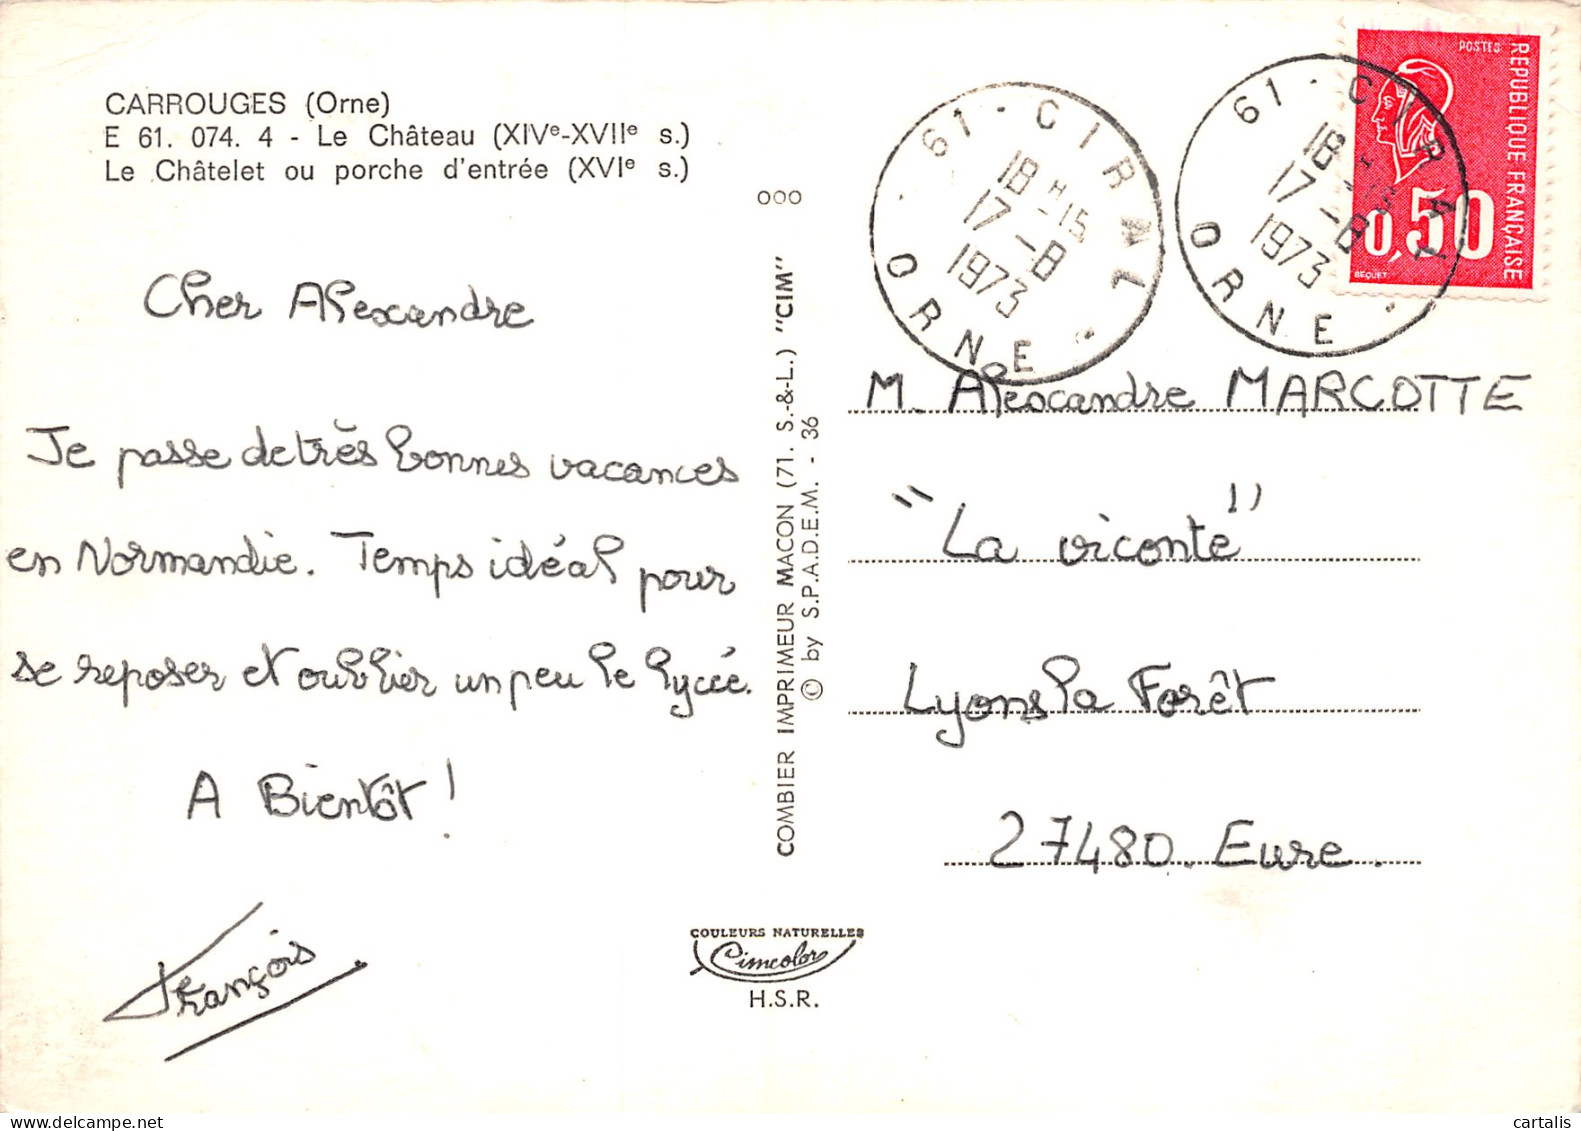 CARROUGES (Orne)
E 61. 074. 4 - Le Château (XIVe-XVIIe s.)
Le Châtelet ou porche d'entrée (XVIe s.)
Cher Alexandre
Je passe de très bonnes vacances
en Normandie. Temps idéal pour
se reposer et oublier un peu le lycée.
A Bientôt !
François
000
COMBIER IMPRIMEUR MACON (71. S.-&-L.) "CIM"
© by S.P.A.D.E.M. - 36
COULEURS NATURELLES
Cimcolor
H.S.R.
61 - CIRAL
18 H 15
17 - 8
1973
ORNE
61 - CIRAL
18 H 15
17 - 8
1973
ORNE
POSTES
REPUBLIQUE FRANÇAISE
0,50
BEQUET
M. Alexandre MARCOTTE
"La viconté"
Lyons la Forêt
27480. Eure.
cartalis